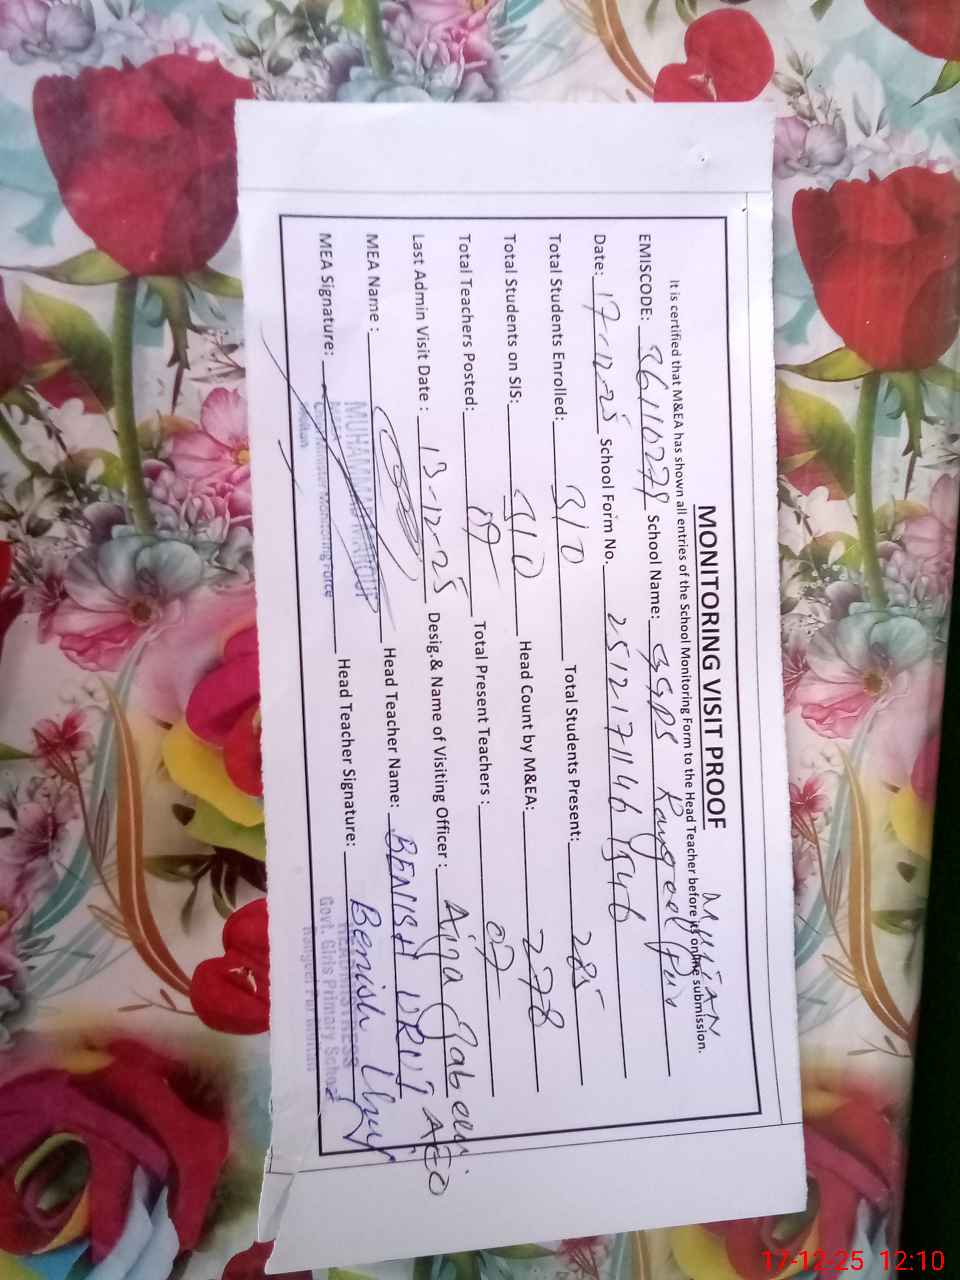 MONITORING VISIT PROOF
MULTAN
It is certified that M&EA has shown all entries of the School Monitoring Form to the Head Teacher before its online submission.
EMISCODE: 36110279 School Name: GGPS Rangeel Pur
Date: 17-12-25 School Form No. 25121711461546
Total Students Enrolled: 310 Total Students Present: 285
Total Students on SIS: 310 Head Count by M&EA: 278
Total Teachers Posted: 09 Total Present Teachers : 07
Last Admin Visit Date : 13-12-25 Desig.& Name of Visiting Officer : AEO
MEA Name : MUHAMMAD Head Teacher Name: BENISH
MEA Signature: Head Teacher Signature: Benish
MEA
Chief Minister Monitoring Force
Multan
HEADMISTRESS
Govt. Girls Primary School
Rangeel Pur Multan
17-12-25 12:10